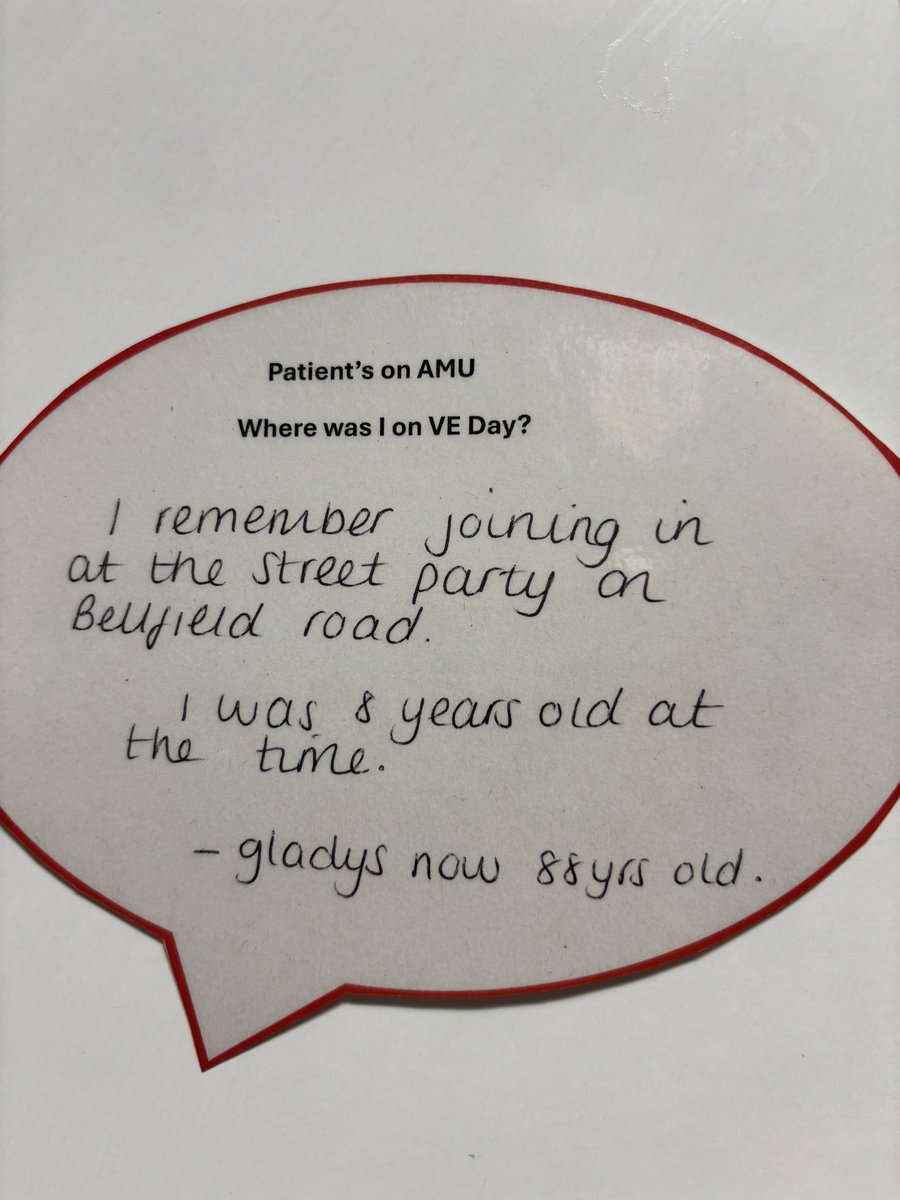 Patient's on AMU
Where was I on VE Day?
I remember joining in
at the street party on
Bellfield road.
I was 8 years old at
the time.
- gladys now 88yrs old.